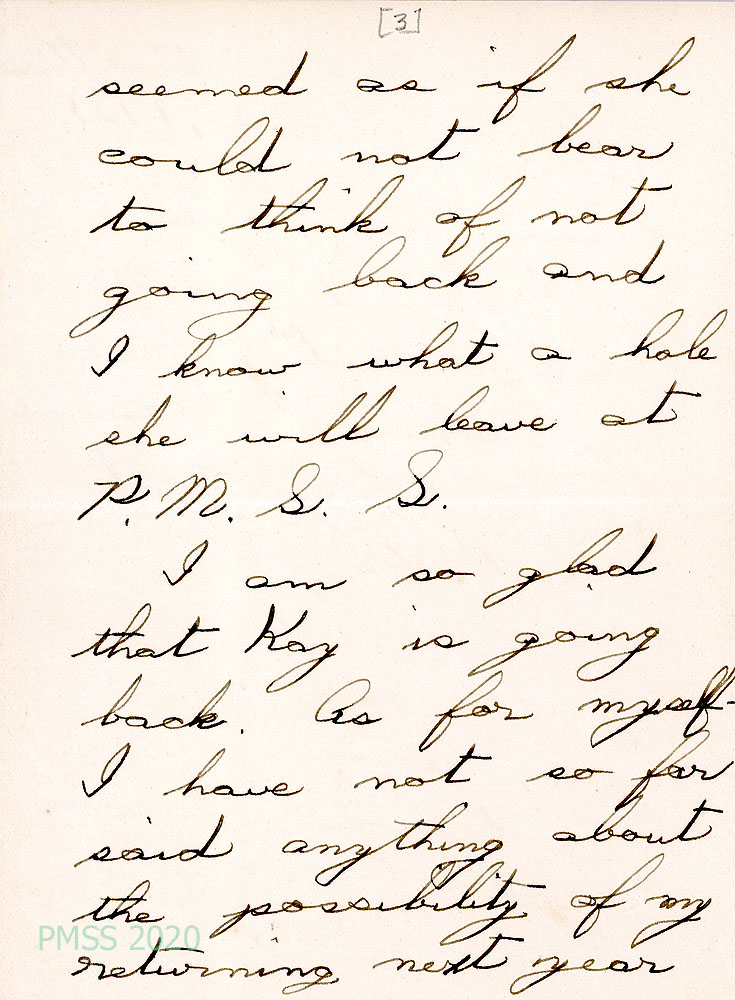 [3]
seemed as if she
could not bear
to think of not
going back and
I know what a hole
she will leave at
P. M. S. S.
I am so glad
that Kay is going
back. As for myself-
I have not so far
said anything about
the possibility of my
PMSS 2020
returning next year